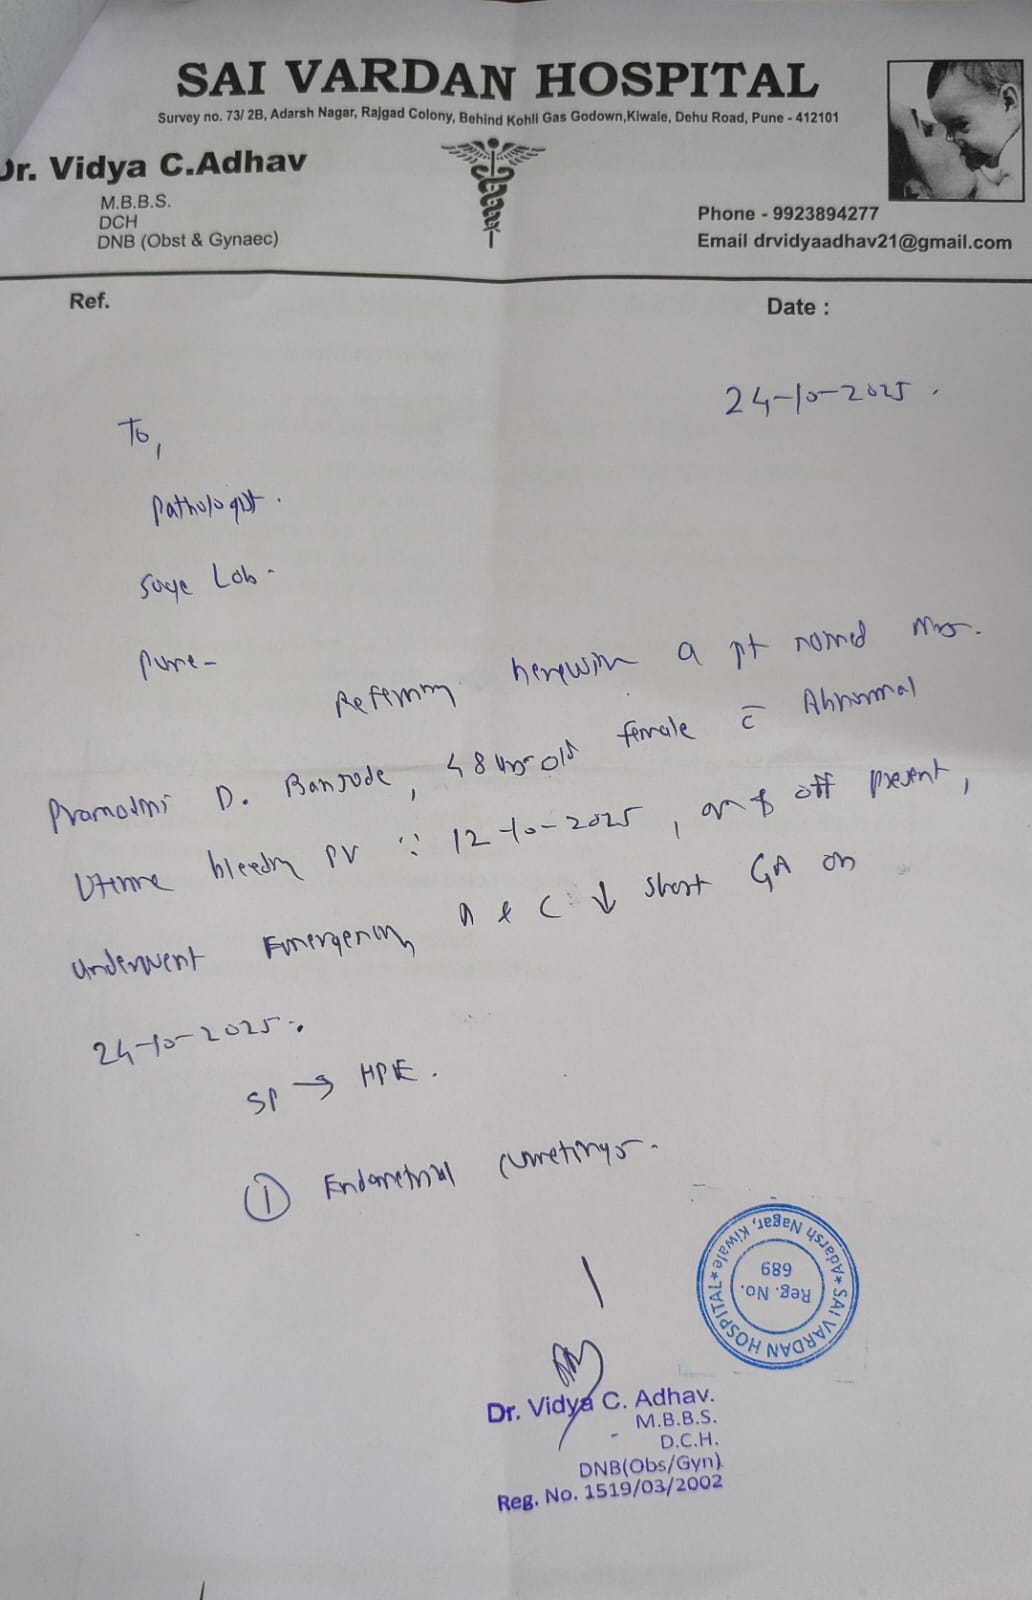 SAI VARDAN HOSPITAL
Survey no. 73/ 2B, Adarsh Nagar, Rajgad Colony, Behind Kohli Gas Godown,Kiwale, Dehu Road, Pune - 412101
Dr. Vidya C.Adhav
M.B.B.S.
DCH
DNB (Obst & Gynaec)
Phone - 9923894277
Email drvidyaadhav21@gmail.com
Ref.
Date :
24-10-2025.
To,
Pathologist.
Lab-
Pune-
Referring herewith a pt named Mrs.
D. Bansode, 48 yrs old female c̄ Abnormal
Uterine bleeding PV ∵ 12-10-2025, on & off present,
underwent Emergency D & C ↓ short GA on
24-10-2025.
SP → HPE.
① Endometrial curretings.
SAI VARDAN HOSPITAL ★ Adarsh Nagar, Kiwale ★
Reg. No.
689
Dr. Vidya C. Adhav.
M.B.B.S.
D.C.H.
DNB(Obs/Gyn)
Reg. No. 1519/03/2002